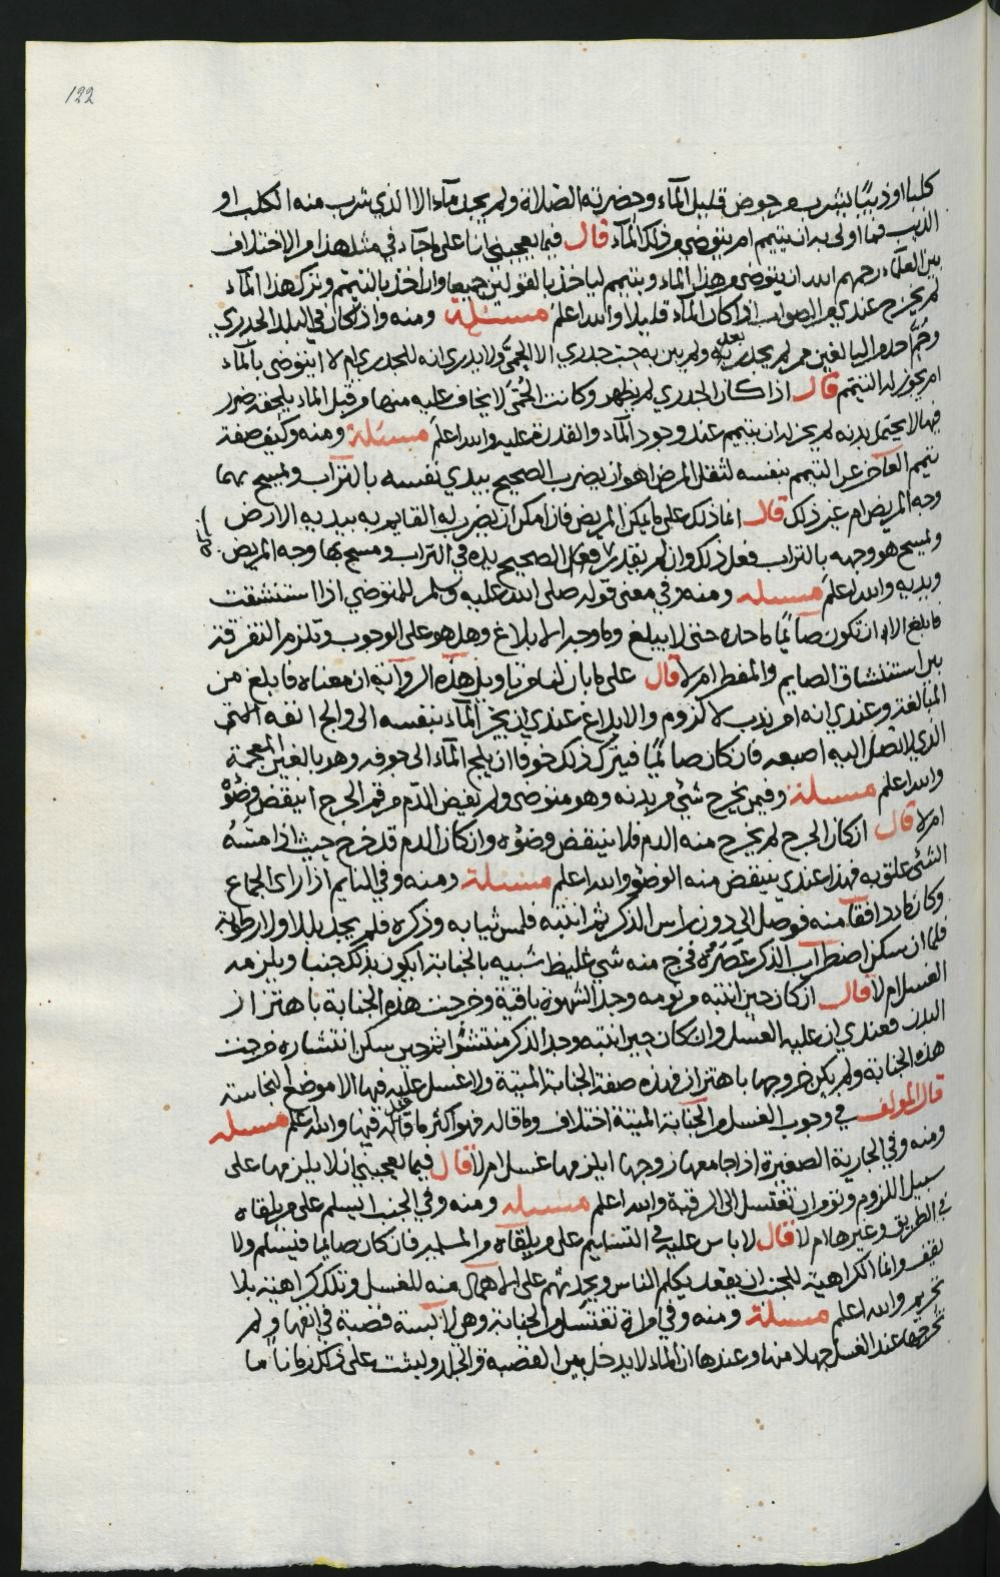 122
كلبا او ذيبًا يشرب من حوض قليل الماء وحضرته الصلاة ولم يجد مآء الا الذي شرب منه الكلب او
الذيب فما اولى به ان يتيمم ام يتوضى من ذلك المآء قال فيما يعجبني انا على ما جآء في مثل هذا من الاختلاف
بين العلمآء رحمهم الله ان يتوضى من هذا المآء ويتيمم لياخذ بالقولين جميعا وان اخذ بالتيمم وترك هذا المآء
لم يخرج عندي من الصواب اذا كان المآء قليلا والله اعلم مسئلة ومنه واذا كان في البلد الجدري
وحُمَّ احد من البالغين ممن لم يجدر بعد ولم يبن به حب جدري الا الحمى ولا يدرى انه للجدري ام لا ايتوضى بالمآء
ام يجوز له التيمم قال اذا كان الجدري لم يظهر وكانت الحُمَّى لا يخاف عليه منها من قبل المآء يلحقه ضرر
فيما لا يحتمل بدنه لم يجز له ان يتيمم عند وجود المآء والقدرة عليه والله اعلم مسئلة ومنه وكيف صفة
تيمم العآجز عن التيمم بنفسه لثقل المرض اهو ان يضرب الصحيح بيدي نفسه بالتراب ويمسح بهما
وجه المريض ام غير ذلك قال انما ذلك على ما يمكن المريض فان امكن ان يضرب له القايم به بيديه الارض
ويمسح هو وجهه بالتراب فعل ذلك وان لم يقدر فعل الصحيح يده في التراب ومسح بها وجه المريض
ويديه والله اعلم مسئله ومنه وفي معنى قوله صلى الله عليه وسلم للمتوضي اذا استنشقت
فابلغ الا ان تكون صآئمًا ما حده حتى لا يبلغ وما وجه الابلاغ وهل هو على الوجوب وتلزم التفرقة
بين استنشاق الصايم والمفطر ام لا قال على ما بان لنا من تاويل هذه الروآية ان معناه فابلغ من
المبالغة وعندي انه امر ندب لا لزوم والابلاغ عندي ان يجر المآء بنفسه الى والج انفه الى حتى
الذي لا تصل اليه اصبعه فان كان صائمًا فيترك ذلك خوفا ان يلج المآء الى جوفه وهو بالغين المعجمة
والله اعلم مسئلة وفيمن يخرج شئ من بدنه وهو متوضى ولم يفيض الدم من فم الجرح اينقض وضؤه
ام لا قال ان كان الجرح لم يخرج منه الدم فلا ينتقض وضؤه وان كان الدم قد خرج حيث اذا مسَّهُ
الشئ علق به فهذا عندي ينتقض منه الوضؤ والله اعلم مسئلة ومنه وفي النايم اذا راى الجماع
وكان ما دافقًا منه فوصل الى دون راس الذكر ثم انتبه فلمس ثيابه وذكره فلم يجد بللا ولا رطوبة
فلما ان سكن اضطرآب الذكر عَصَرَهُ فخرج منه شي غليظ شبيه بالجنابة ايكون بذلك جنبا ويلزمه
الغسل ام لا قال ان كان حين انتبه من نومه وجد الشهوة باقية وخرجت هذه الجنابة باهتزاز
البدن فعندي ان عليه الغسل وان كان حين انتبه وجد الذكر منتشرًا ثم حين سكن انتشاره خرجت
هذه الجنابة ولم يكن خروجها باهتزاز فهذه صفة الجنابة الميتة ولا غسل عليه فيها الا موضع النجاسة
قال المؤلف في وجوب الغسل من الجنابة الميتة اختلاف وما قاله فهو اكثر ما قيل فيها والله اعلم مسئله
ومنه وفي الجارية الصغيرة اذا جامعها زوجها ايلزمها غسل ام لا قال فيما يعجبني ان لا يلزمها على
سبيل اللزوم وتؤمر ان تغتسل الى الرقبة والله اعلم مسئله ومنه وفي الجنب ايسلم على من يلقاه
في الطريق وغيرها ام لا قال لا باس عليه في التسليم على من يلقاه من المسلمين فان كان صايما فيسلم ولا
يقف وانما الكراهية للجنب ان يقعد يكلم الناس ويحدثهم على الاهمال منه للغسل وتلك كراهية بلا
تحريم والله اعلم مسئلة ومنه وفي امراة تغتسل من الجنابة وهي لآبسة قصبة في انفها ولم
تحركها عند الغسل جهلا منها وعندها ان المآء لا يدخل بين القصبة والجلد ولبثت على ذلك زمانا ما